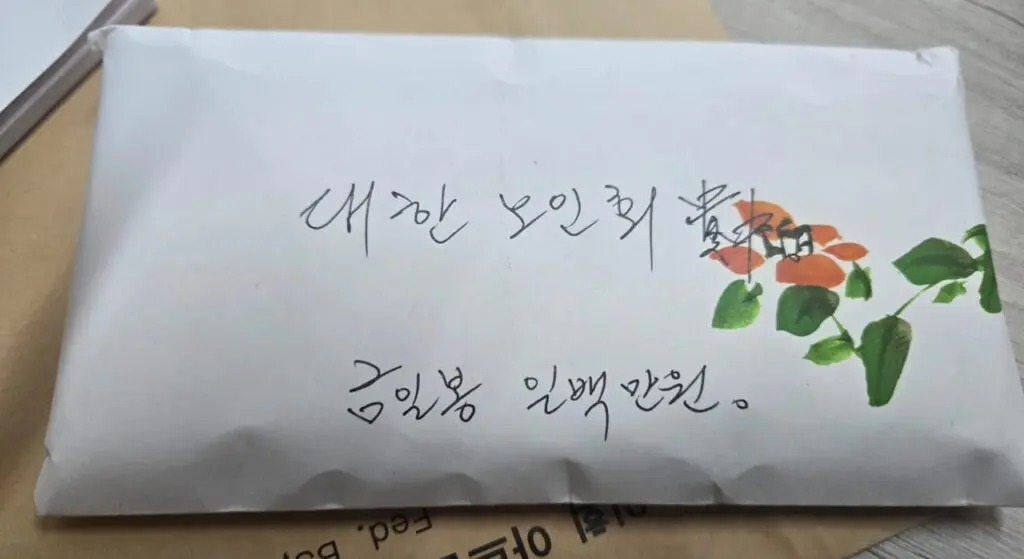 대한 노인회
금일봉 일백만원。
Fed.